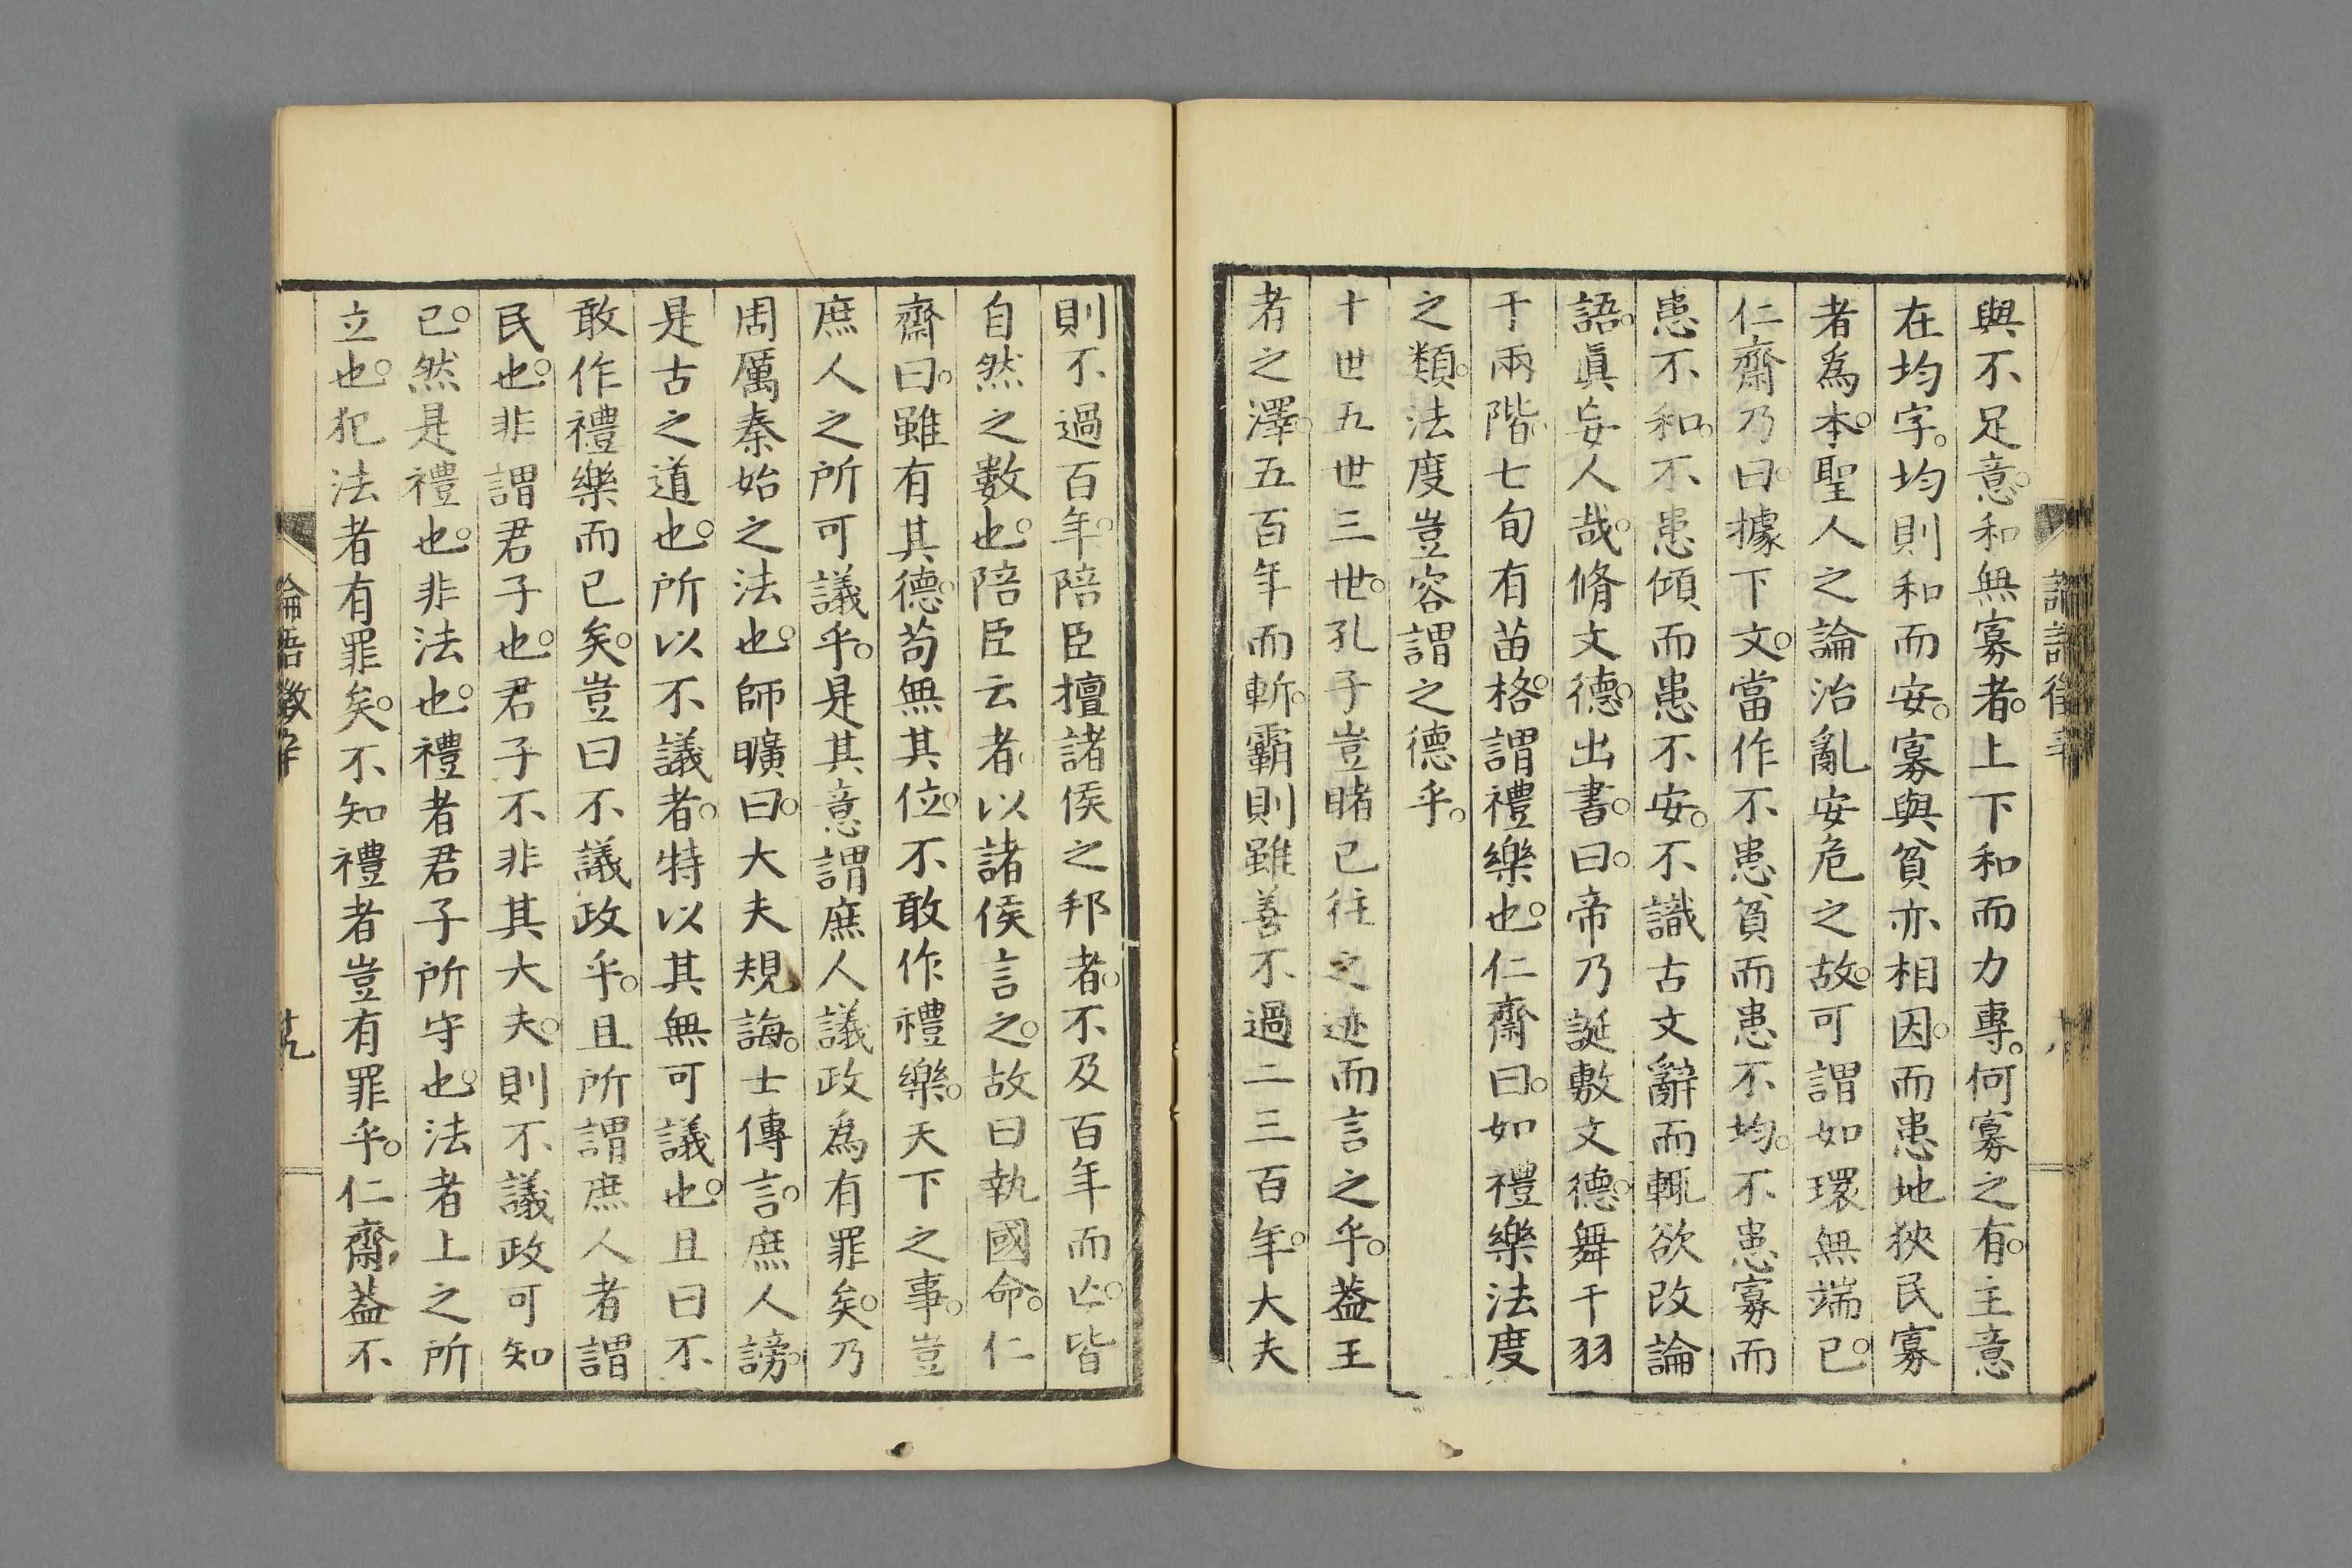 與不足意。和無寡者。上下和而力專。何寡之有。主意
在均字。均則和而安。寡與貧亦相因。而患地狹民寡
者爲本。聖人之論治亂安危之故。可謂如環無端已。
仁齋乃曰。據下文。當作不患貧而患不均。不患寡而
患不和。不患傾而患不安。不識古文辭而輒欲改論
語。眞妄人哉。脩文德。出書。曰。帝乃誕敷文德。舞干羽
于兩階。七旬有苗格。謂禮樂也。仁齋曰。如禮樂法度
之類。法度豈容謂之德乎。
十世五世三世。孔子豈睹已往之迹而言之乎。葢王
者之澤。五百年而斬。霸則雖善不過二三百年。大夫
則不過百年。陪臣擅諸侯之邦者。不及百年而亾。皆
自然之數也。陪臣云者。以諸侯言之。故曰執國命。仁
齋曰。雖有其德。苟無其位。不敢作禮樂。天下之事。豈
庶人之所可議乎。是其意謂庶人議政爲有罪矣。乃
周厲秦始之法也。師曠曰。大夫規誨。士傳言。庶人謗。
是古之道也。所以不議者。特以其無可議也。且曰不
敢作禮樂而已矣。豈曰不議政乎。且所謂庶人者謂
民也。非謂君子也。君子不非其大夫。則不議政可知
已。然是禮也。非法也。禮者君子所守也。法者上之所
立也。犯法者有罪矣。不知禮者豈有罪乎。仁齋葢不